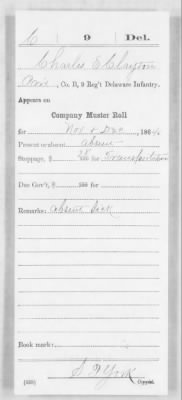 C 9 Del.
Charles E Clayton
Priv, Co. B, 9 Reg't Delaware Infantry.
Appears on
Company Muster Roll
for Nov & Dec, 1864.
Present or absent Absent
Stoppage, $ 100 for Transportation
Due Gov't, $ 100 for
Remarks: Absent Sick
Book mark:
(358) Copyist.